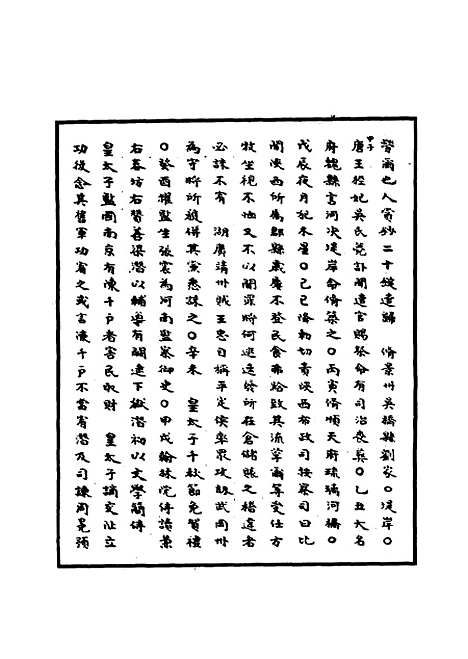 督爾也人賞鈔二十錠遣歸　脩景州吳橋縣劉家○淀岸○
甲子
唐王桱妃吳氏薨訃聞遣官賜祭命有司治喪葬○乙丑大名
府魏縣言河決淀岸命脩築之○丙寅脩順天府琉璃河橋○
戊辰夜月犯木星○己巳降勑切責陝西布政司按察司曰比
聞陝西所屬郡縣歲屢不登民食弗給致其流莩爾等受任方
牧坐視不恤又不以聞罪將何逃速發所在倉儲賑之稽違者
必誅不宥　湖廣靖州賊王忠自稱平定侯率眾攻劫武岡州
為守將所獲併其黨悉誅之○辛未　皇太子千秋節免賀禮
○癸酉擢監生張宏為河南監察御史○甲戌翰林院侍讀兼
右春坊右贊善梁潛以輔導有闕逮下獄潛初以文學簡侍
皇太子監國南京有陳千戶者害民取財　皇太子謫交阯立
功後念其舊軍功宥之或言陳千戶不當宥潛及司諫周冕預